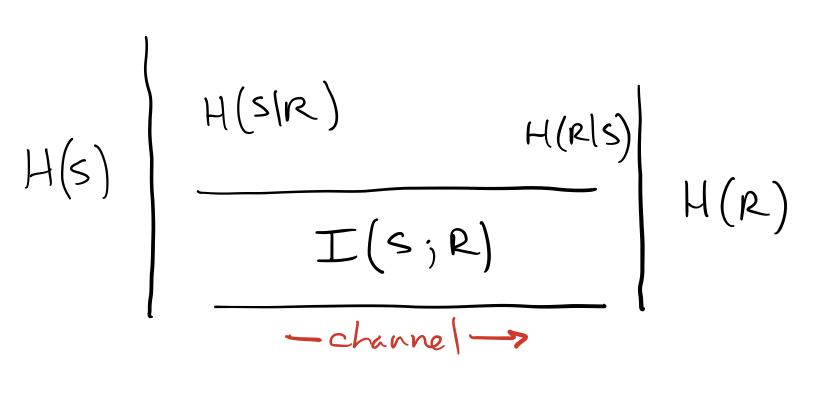 H(S|R)
H(R|S)
H(S)
H(R)
I(S;R)
channel